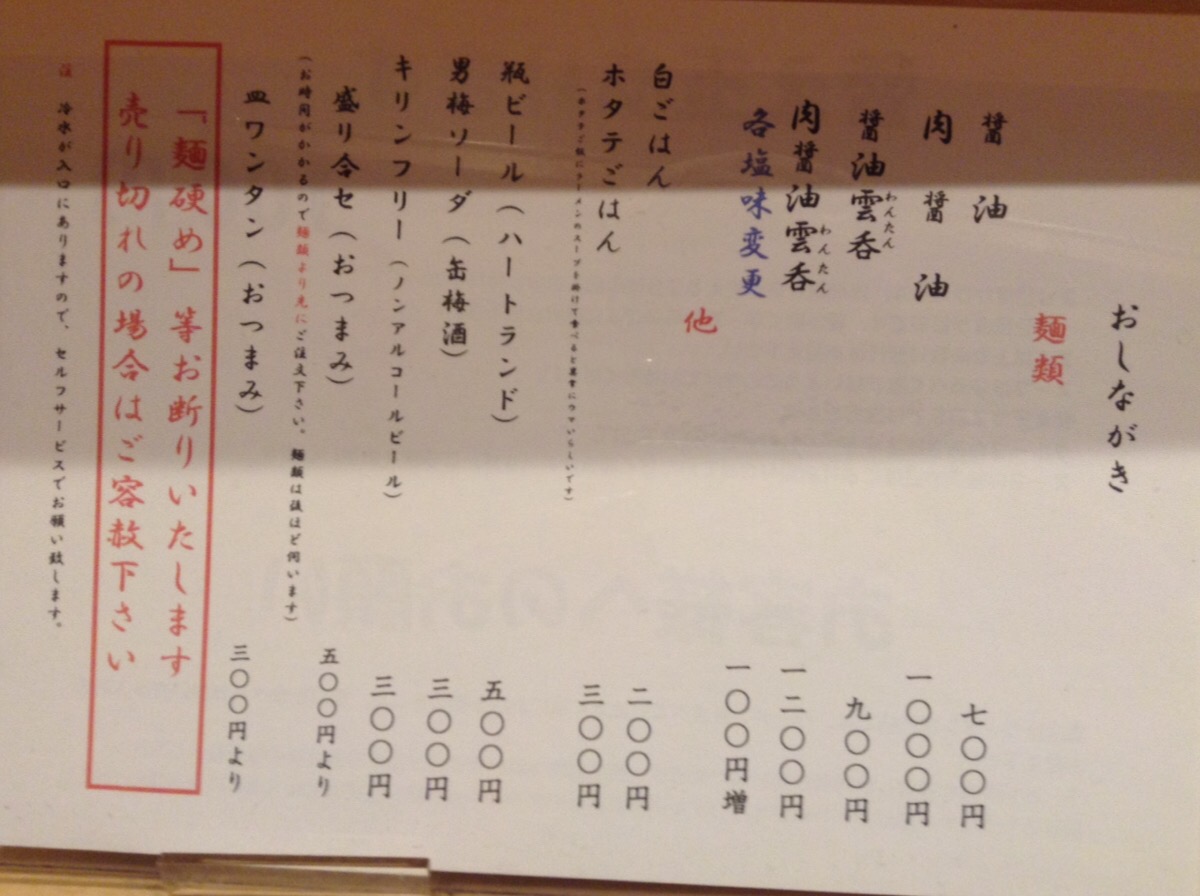 おしながき
麺類
醤油 七〇〇円
肉醤油 一〇〇〇円
醤油雲呑 わんたん 九〇〇円
肉醤油雲呑 わんたん 一二〇〇円
各塩味変更 一〇〇円増
他
白ごはん 二〇〇円
ホタテごはん 三〇〇円
(ホタテご飯にラーメンのスープを掛けて食べると異常にウマいらしいです)
瓶ビール(ハートランド) 五〇〇円
男梅ソーダ(缶梅酒) 三〇〇円
キリンフリー(ノンアルコールビール) 三〇〇円
盛り合せ(おつまみ) 五〇〇円より
(お時間がかかるので麺類より先にご注文下さい。麺類は後ほど伺います)
皿ワンタン(おつまみ) 三〇〇円より
「麺硬め」等お断りいたします
売り切れの場合はご容赦下さい
注 冷水が入口にありますので、セルフサービスでお願い致します。